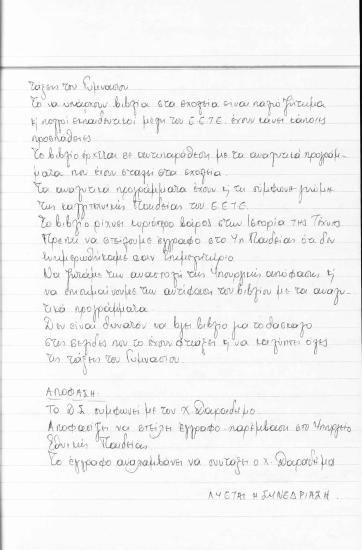 τάξεις του Γυμνασίου
Το να υπάρχουν βιβλία στα σχολεία είναι παλιό ζήτημα
κ πολλοί εκπαιδευτικοί μέλη του Ε.Ε.Τ.Ε. έχουν κάνει κάποιες
προσπάθειες
Το βιβλίο έρχεται σε αντιπαράθεση με τα αναλυτικά προγράμ-
ματα που έχουν σταλεί στα σχολεία.
Τα αναλυτικά προγράμματα έχουν κ τη σύμφωνη γνώμη
της καλλιτεχνικής Παιδείας του Ε.Ε.Τ.Ε.
Το βιβλίο ρίχνει κυρίως βάρος στην Ιστορία της Τέχνης
Πρέπει να στείλουμε έγγραφο στο Υπ Παιδείας ότι δεν
ενημερωθήκαμε σαν Επιμελητήριο
Να ζητάμε την αναστολή της Υπουργικής απόφασης κ
να επισημαίνουμε την αντίφαση του βιβλίου με τα αναλυ-
τικά προγράμματα
Δεν είναι δυνατόν να βγει βιβλίο για το δάσκαλο
στις σελίδες που το έχουν φτιάξει κ να καλύπτει όλες
τις τάξεις του Γυμνασίου.
ΑΠΟΦΑΣΗ:
Το Δ.Σ. συμφωνεί με τον Χ. Δαραδήμο
Αποφασίζει να στείλει έγγραφο παρέμβαση στο Υπουργείο
Εθνικής Παιδείας
Το έγγραφο αναλαμβάνει να συντάξει ο Χ. Δαραδήμο
ΛΥΕΤΑΙ Η ΣΥΝΕΔΡΙΑΣΗ.